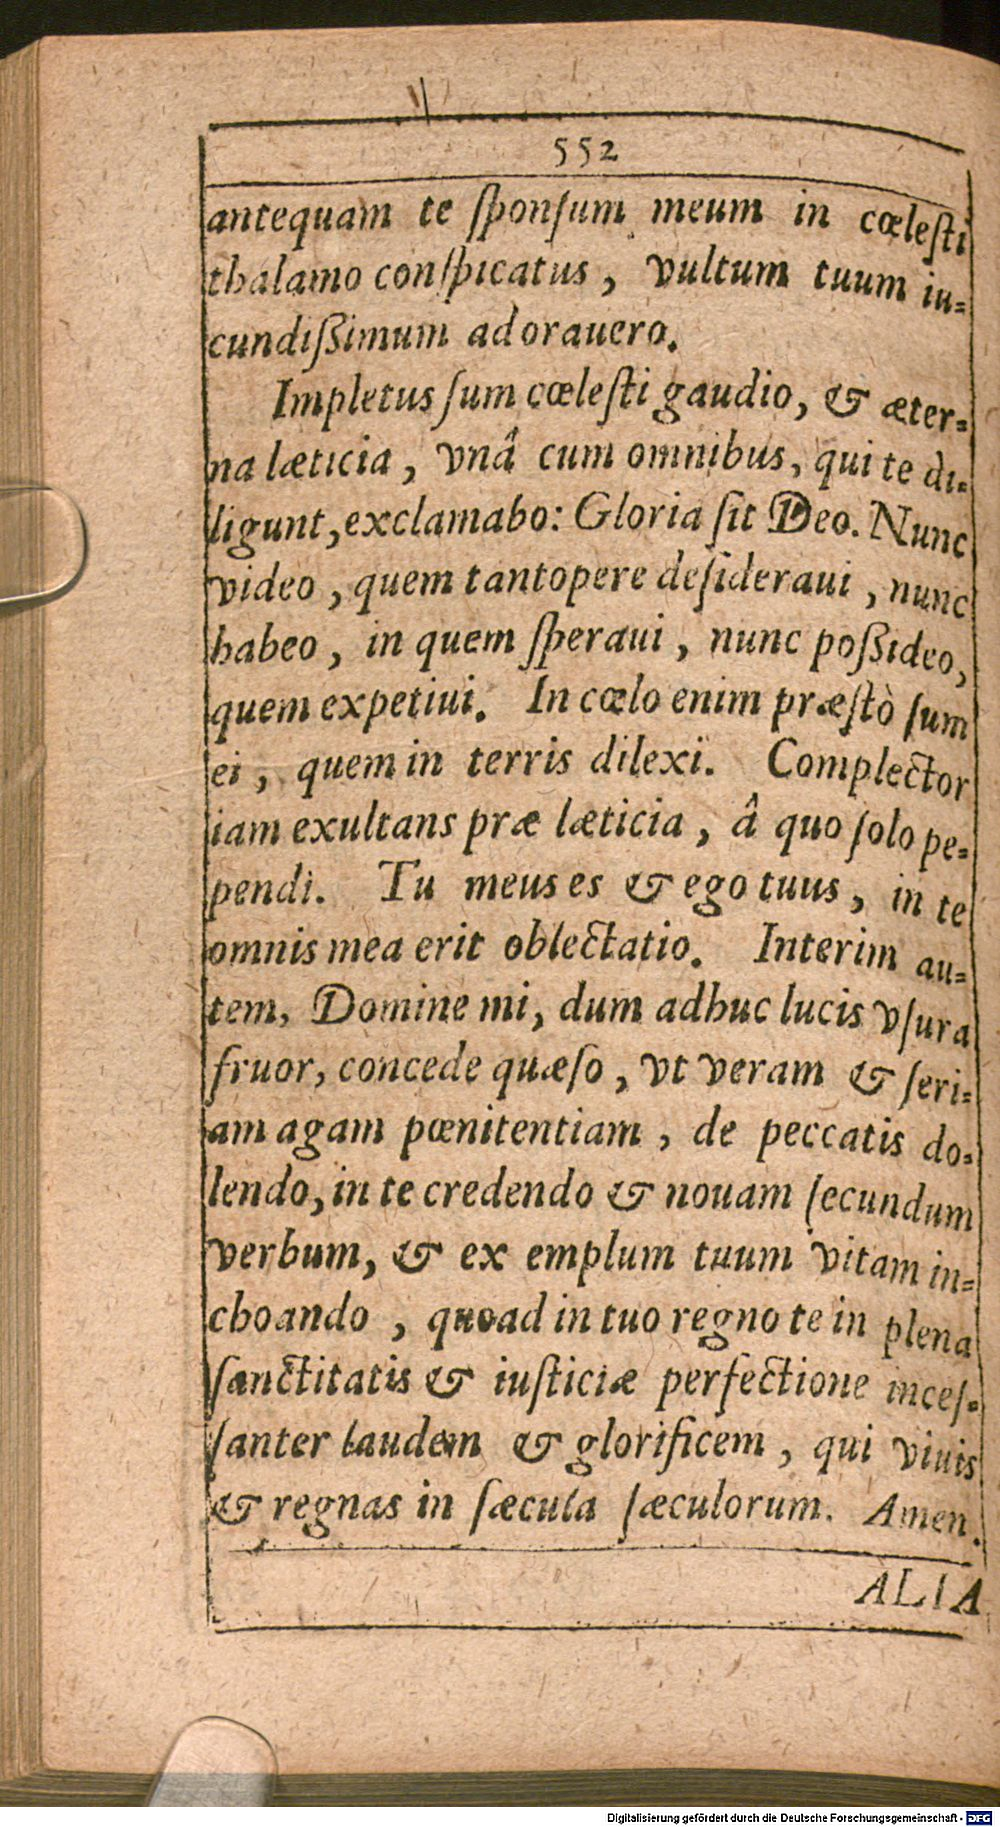 552
antequam te ſponſum meum in cœleſti
thalamo conſpicatus, vultum tuum iu-
cundißimum adorauero.
Impletus ſum cœleſti gaudio, & æter-
na læticia, vnâ cum omnibus, qui te di-
ligunt, exclamabo: Gloria ſit Deo. Nunc
video, quem tantopere deſideraui, nunc
habeo, in quem ſperaui, nunc poßideo,
quem expetiui. In cœlo enim præſtò ſum
ei, quem in terris dilexi. Complector
iam exultans præ læticia, â quo ſolo pe-
pendi. Tu meus es & ego tuus, in te
omnis mea erit oblectatio. Interim au-
tem, Domine mi, dum adhuc lucis vſura
fruor, concede quæſo, vt veram & ſeri-
am agam pœnitentiam, de peccatis do-
lendo, in te credendo & nouam ſecundum
verbum, & ex emplum tuum vitam in-
choando, quoad in tuo regno te in plena
ſanctitatis & iuſticiæ perfectione inceſ-
ſanter laudem & glorificem, qui viuis
& regnas in ſæcula ſæculorum. Amen.
ALIA
Digitalisierung gefördert durch die Deutsche Forschungsgemeinschaft - DFG